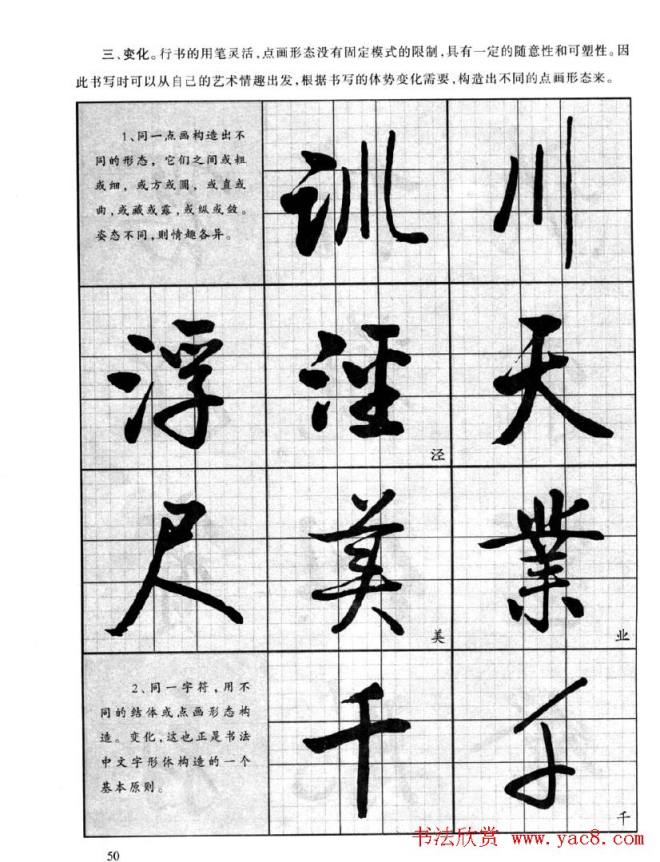 三、变化。行书的用笔灵活,点画形态没有固定模式的限制,具有一定的随意性和可塑性。因
此书写时可以从自己的艺术情趣出发,根据书写的体势变化需要,构造出不同的点画形态来。
1、同一点画构造出不
同的形态,它们之间或粗
或细,或方或圆,或直或
曲,或藏或露,或纵或敛。
姿态不同,则情趣各异。
訓 川
浮 涇 天
泾
尺 美 業
美 业
2、同一字符,用不
同的结体或点画形态构
造。变化,这也正是书法
中文字形体构造的一个
基本原则。
千 千
千
书法欣赏 www.yac8.com
50